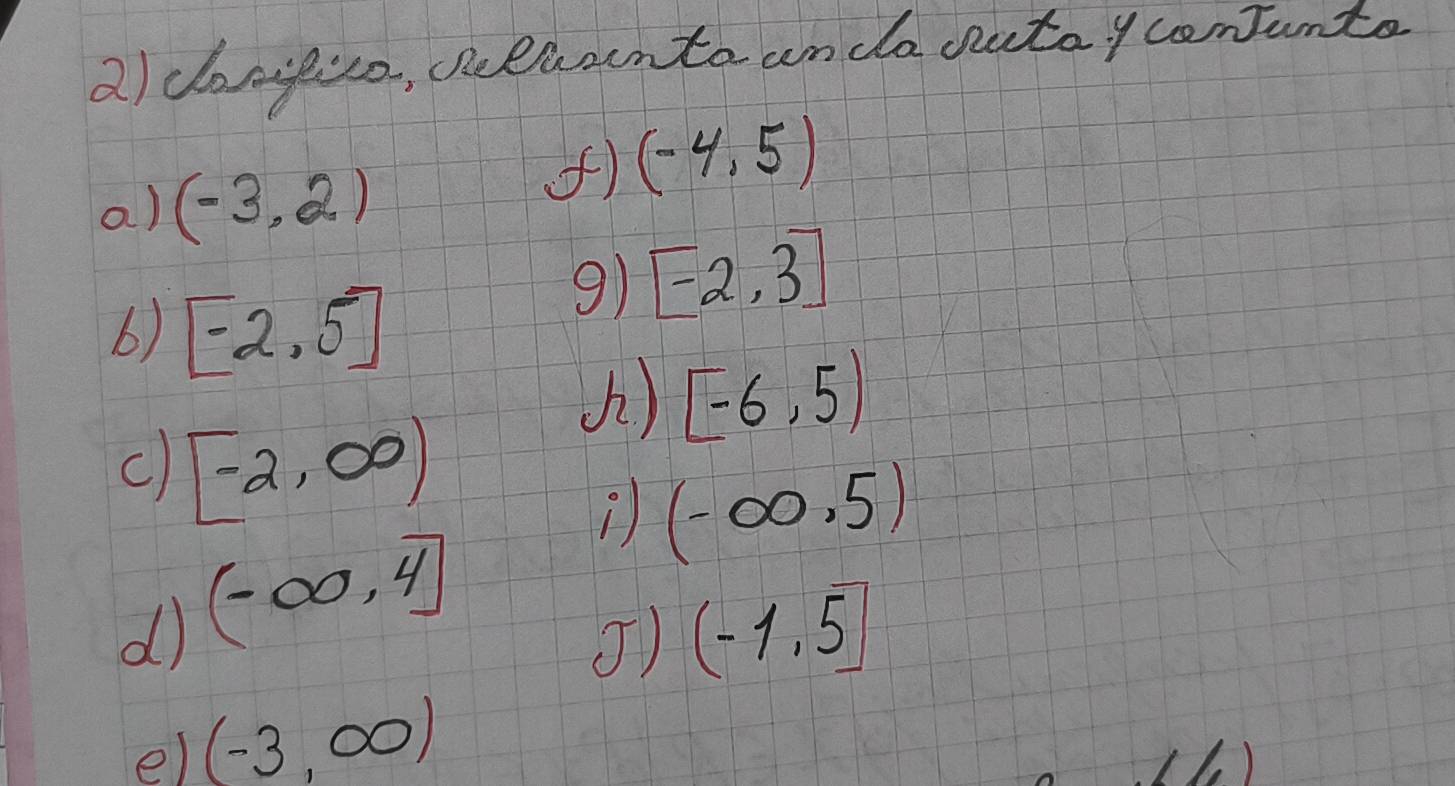 2) clasifica, representa en la recta y conjunto
a) (-3, 2)
b) [-2, 5]
c) [-2, ∞)
d) (-∞, 4]
e) (-3, ∞)
f) (-4, 5)
g) [-2, 3]
h) [-6, 5)
i) (-∞, 5)
J) (-1, 5]